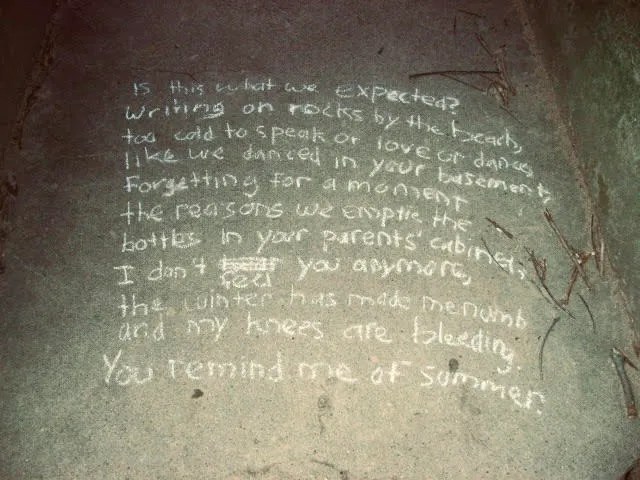 Is this what we expected?
Writing on rocks by the beach,
too cold to speak or love or dance,
like we danced in your basement,
Forgetting for a moment
the reasons we emptie the
bottles in your parents' cabinet,
I don't you anymore,
feel
the winter has made me numb
and my knees are bleeding.
You remind me of summer.